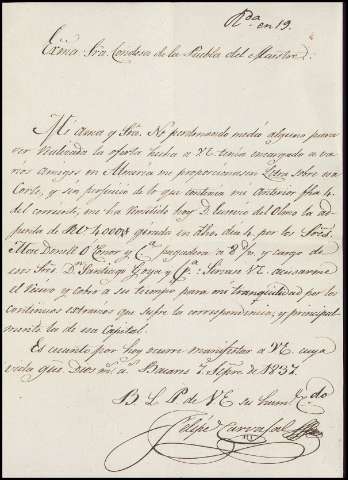 R.da
en 19.
Exma Sra. Condesa de la Puebla del Maestre.
Mi ama y Sra. No perdonando medio alguno para
ver realizada la oferta hecha a VE tenia encargado a va
rios amigos en Almeria me proporcionasen Letra sobre esa
Corte, y sin perjuicio de lo que contenia mi anterior fha 4.
del corriente, me ha remitido hoy D. del Olmo la ad
junta de Rs. 4.000 girada en dho. dia 4. por los Sres.
O Conor y Ca. pagadera a 8 d/v. y cargo de
esos Sres. Dn. Santiago y Ca. Sirvase VE. acusarme
el recivo y cobro a su tiempo para mi tranquilidad por los
continuos estravios que sufre la correspondencia, y principal
mente la de esa Capital.
Es cuanto por hoy ocurre manifestar a VE cuya
vida gue. Dios ms. as. 7. Sepre. de 1837.
B L P de VE su hum.e
Felipe Carvajal